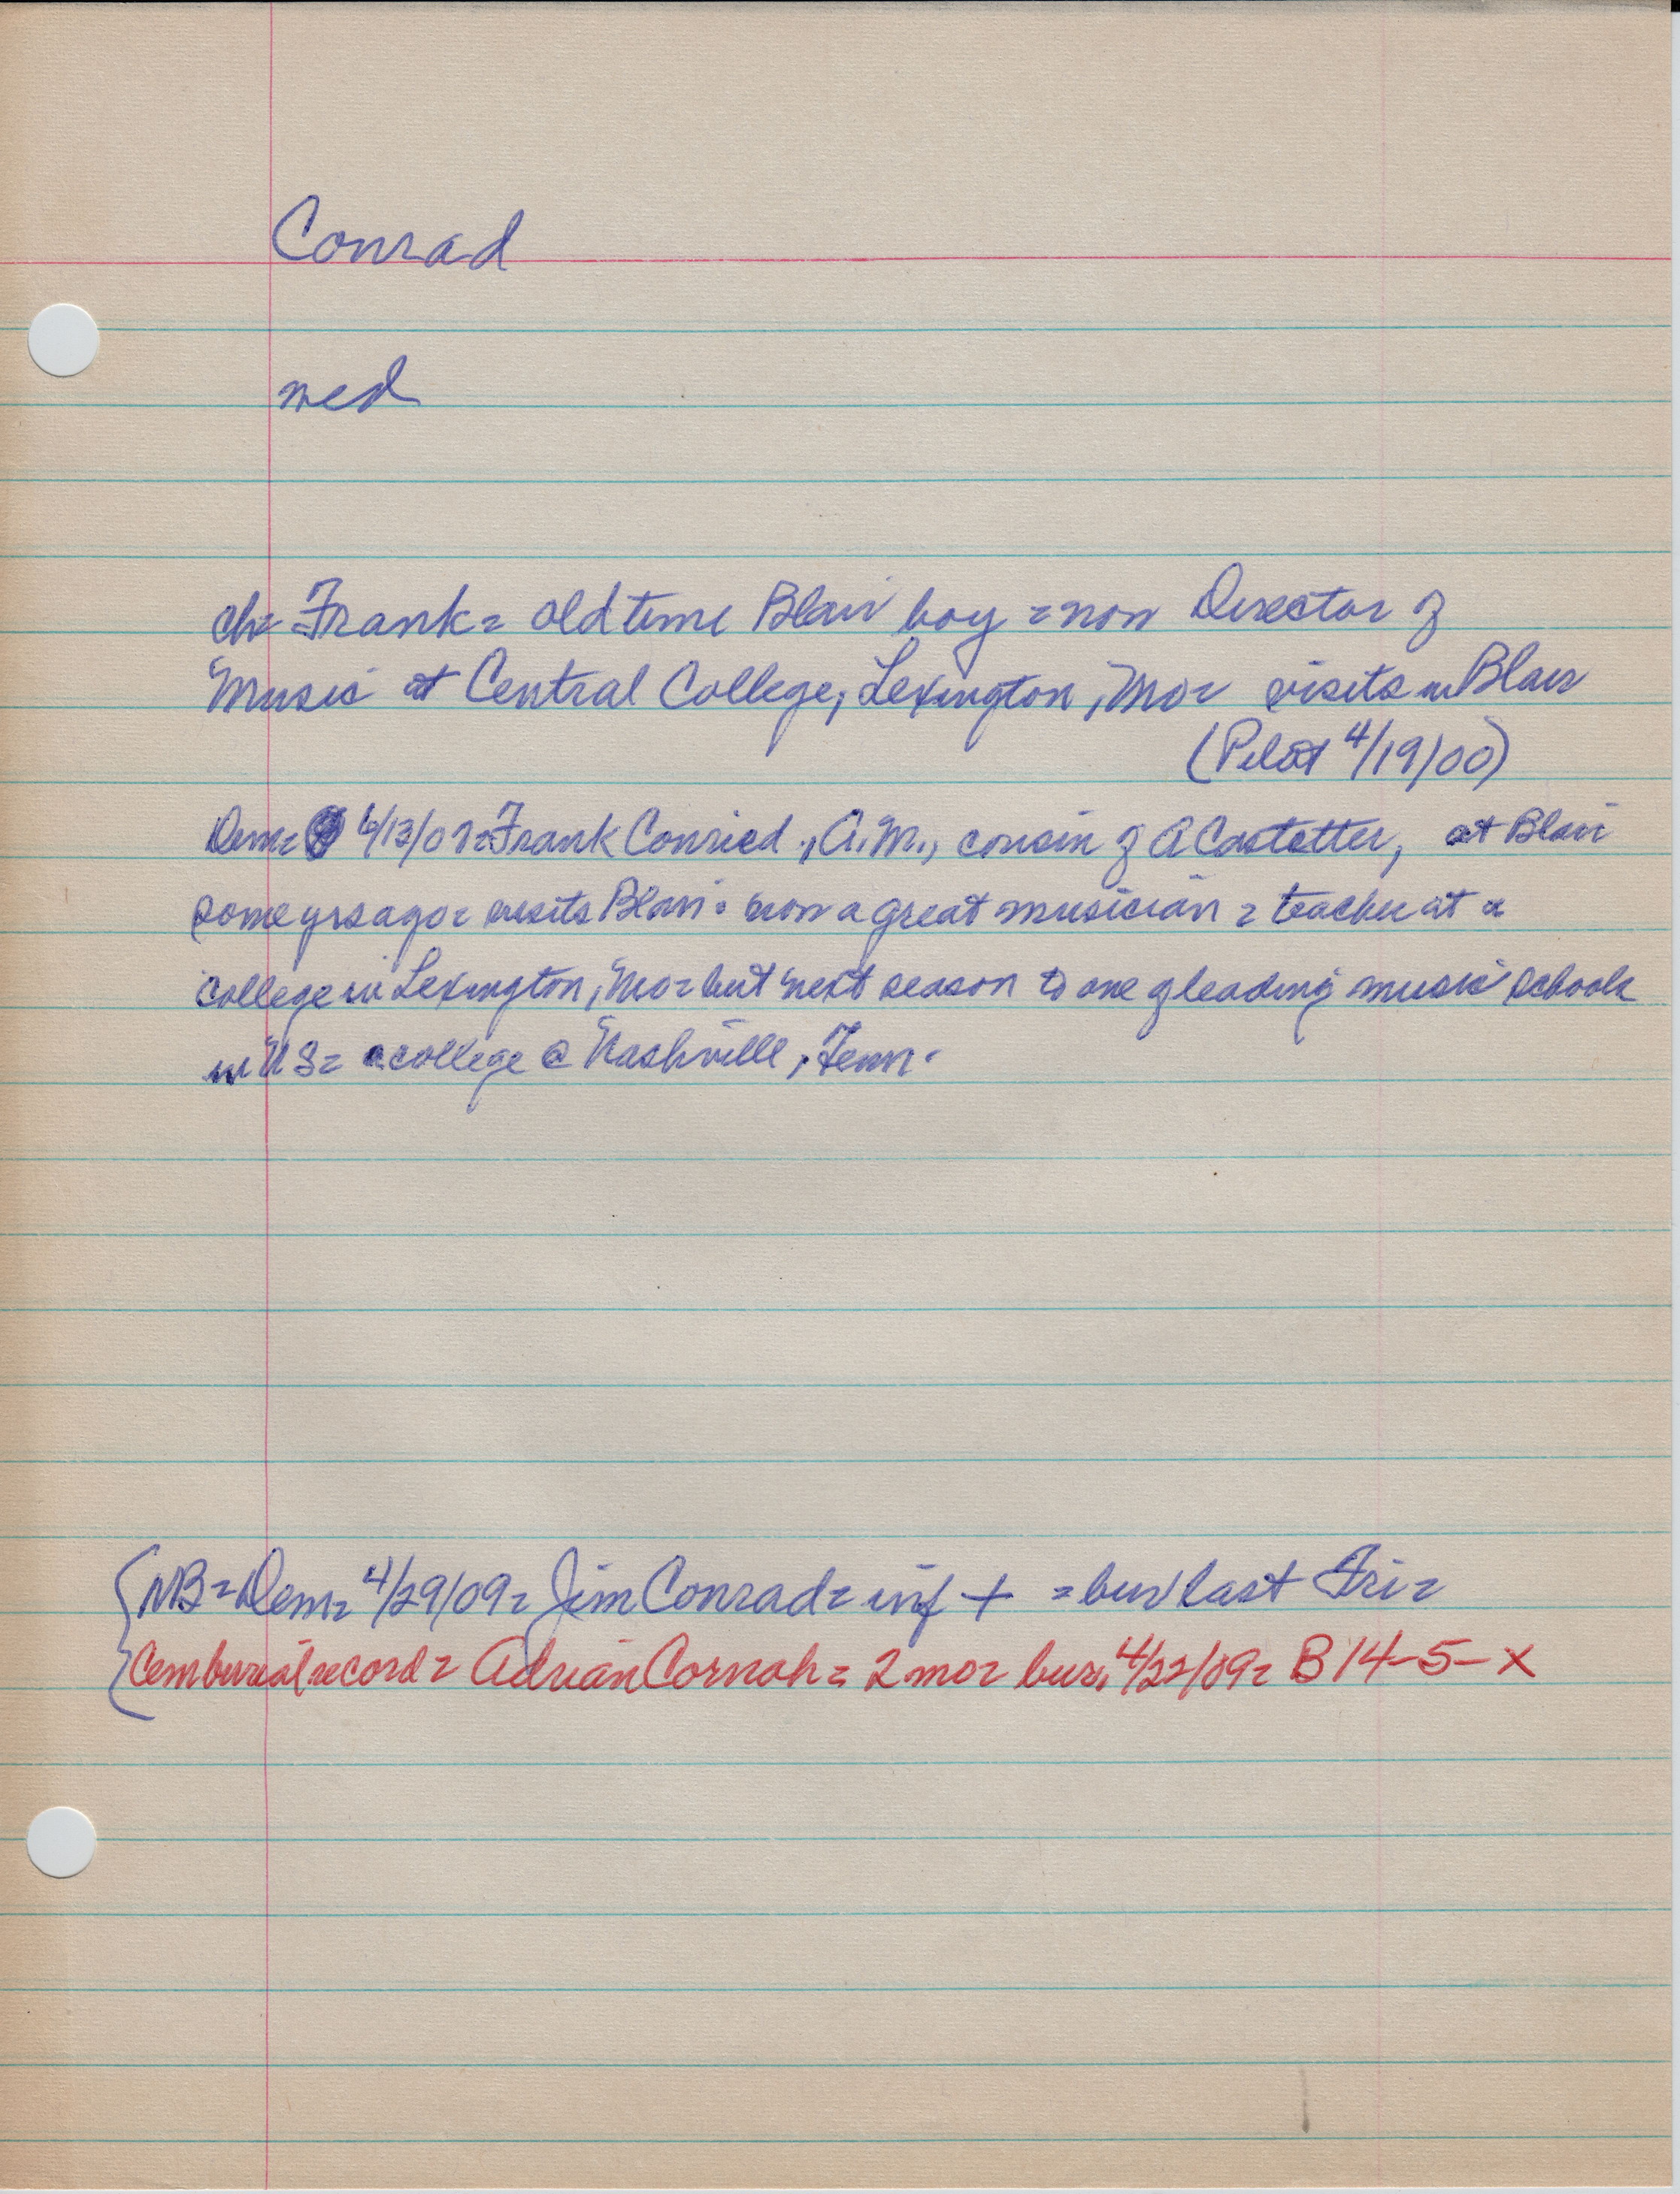 Conrad
med
ch= Frank= old time Blair boy = now Director of
Music at Central College, Lexington, Mo= visits in Blair
(Pilot 4/19/00)
Dem= 6/13/07= Frank Conried, A.M., cousin of A Castetter, at Blair
some yrs ago= visits Blair. now a great musician = teacher at a
college in Lexington, Mo= but next season to one of leading music schools
in US= college @ Nashville, Tenn.
NB= Dem= 4/29/09= Jim Conrad= inf + = bur last Fri=
Cem burial record= Adrian Cornah= 2 mo= bur. 4/22/09= B 14-5-X